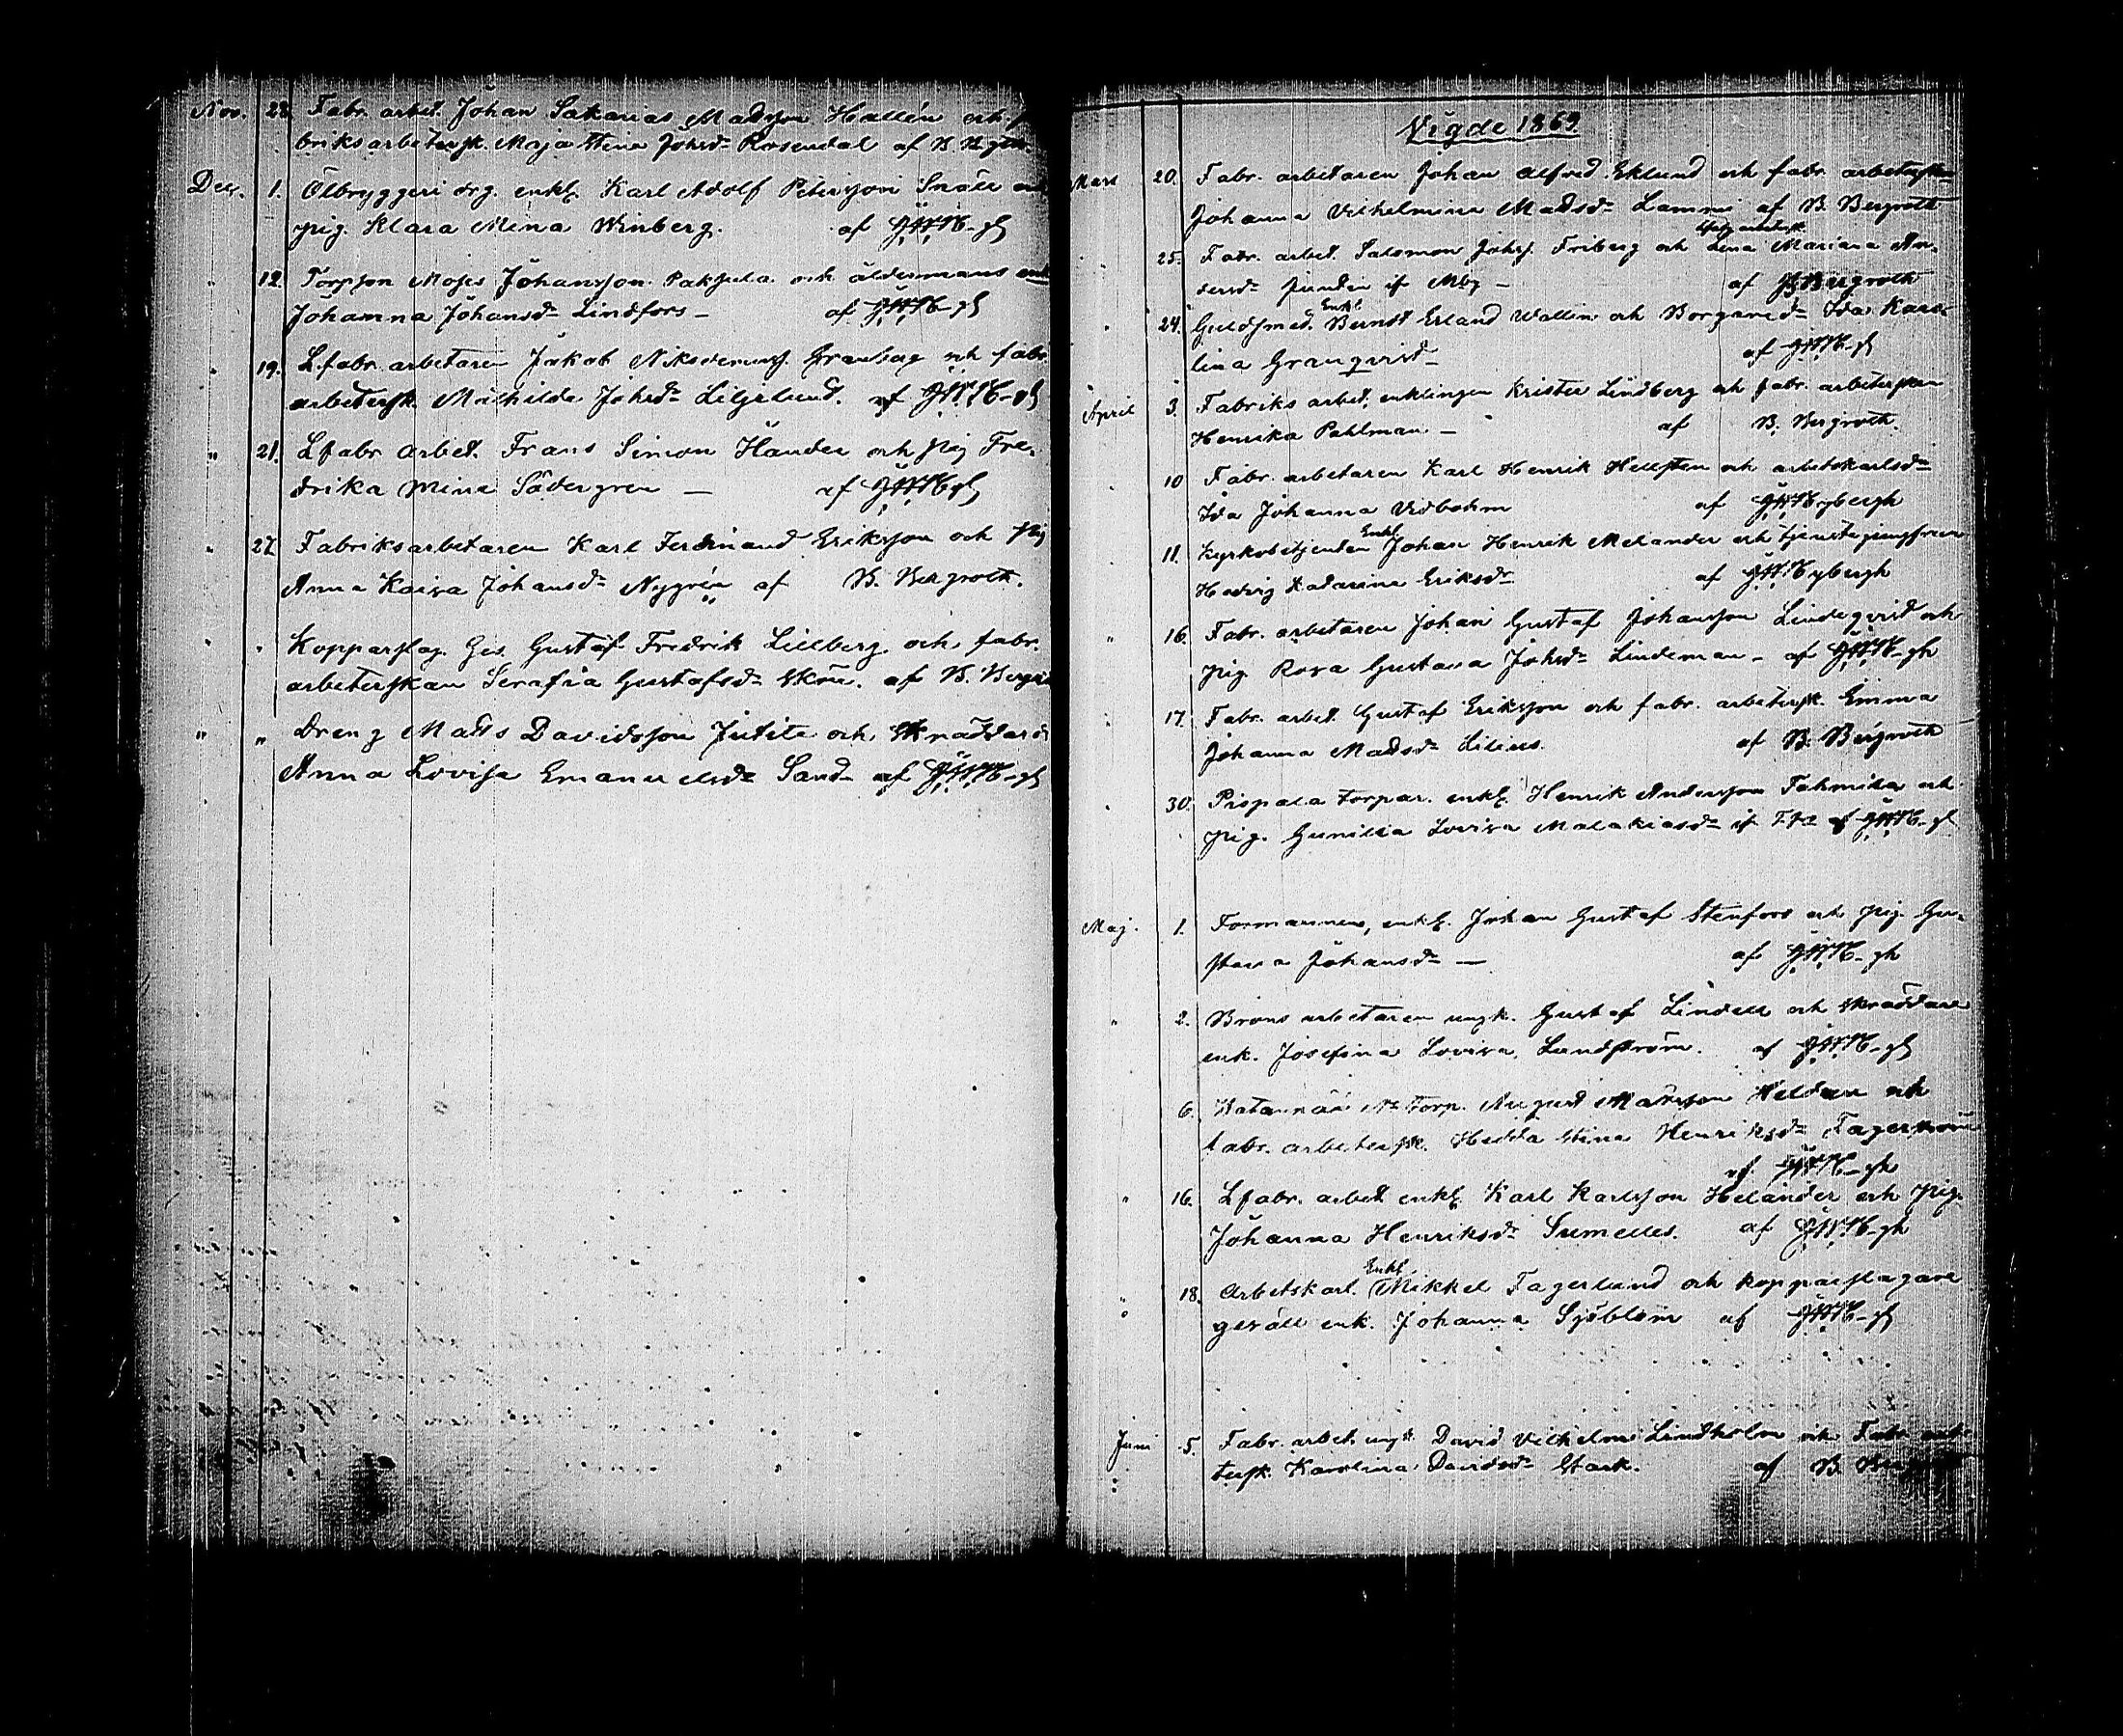 Nov. 28. Fabr. arbet. Johan Sakarias Madsson Hallén och fa
briksarbetersk. Maja Stina Johsdr Rosendal af B. B-groth
Dec. 1. Ölbryggeri drg. enkl. Karl Adolf Petersson Snäll och
pig. Klara Mina Winberg. af
" 12. Torpson Moses Johansson Paksula och åldermans enk
Johanna Johansdr Lindfors — af
" 19. L. fabr. arbetaren Jakob Granberg och fabr.
arbetersk. Mathilda Johsdr Liljelund. af
" 21. L fabr arbet. Frans Simon Hander och pig Fre-
drika Mina Södergren — af
" 27. Fabriksarbetaren Karl Ferdinand Eriksson och pig
Anna Kaisa Johansdr Nygrén af B. Bergroth.
" " Kopparslag. Ges. Gustaf Fredrik Lillberg och fabr.
arbeterskan Serafia Gustafsdr Skön. af B. Bergro
" " Dreng Matts Davidsson Jutila och Skräddar
Anna Lovisa Emanuelsdr Sand- af
Vigde 1869
Mars 20. Fabr. arbetaren Johan Alfred Eklund och fabr. arbeterskan
Johanna Vilhelmina Madsdr Lammi af B. Bergroth
" 25. Fabr. arbet. Salomon Johss. Friberg och Lena Mariana An-
dersdr Jundin if Mby — af B Bergroth
" 24. Guldsmed. Enkl Berndt Erland Wallin och Borgaredr Ida Karo-
lina Granqvist af
April 3. Fabriks arbet. enklingen Krister Lindberg och fabr. arbeterskan
Henrika Pahlman — af B. Bergroth.
" 10 Fabr. arbetaren Karl Henrik Hellsten och arbetskarlsdr
Ida Johanna Vidbohm af
11. Kyrkobetjenten Enkl Johan Henrik Melander och tjenstejungfrun
Hedvig Katarina Eriksdr af
" 16. Fabr. arbetaren Johan Gustaf Johansson Lindeqvist och
pig. Rosa Gustava Johsdr Lindeman — af
" 17. Fabr. arbet. Gustaf Eriksson och fabr. arbetersk. Emma
Johanna Madsdr Lilius. af B. Bergroth
" 30. Pispala torpar. enkl. Henrik Andersson Fahmila och
pig. Gunilla Lovisa Malakiasdr if af
Maj. 1. Formannen, enkl. Johan Gustaf Stenfors och pig. Gu-
stava Johansdr — af
" 2. Brons arbetaren ungk. Gustaf Lindell och skräddare
enk. Josefina Lovisa Lundström. af
6. Hatanpää Torp. August Mattsson Heldan och
fabr. arbetersk. Hedda Stina Henriksdr Fagerström
af
" 16. L fabr. arbet enkl. Karl Karlsson Helander och pig.
Johanna Henriksdr Sumelles. af
" 18. Arbetskarl. Enkl. Mikkel Fagerlund och kopparslagare
gesäll enk. Johanna Sjöblom af
Juni 5. Fabr. arbet. ungk. David Vilhelm Lindholm och Fabr. arbe-
tersk. Karolina Davidsdr Stark. af B. Bergroth